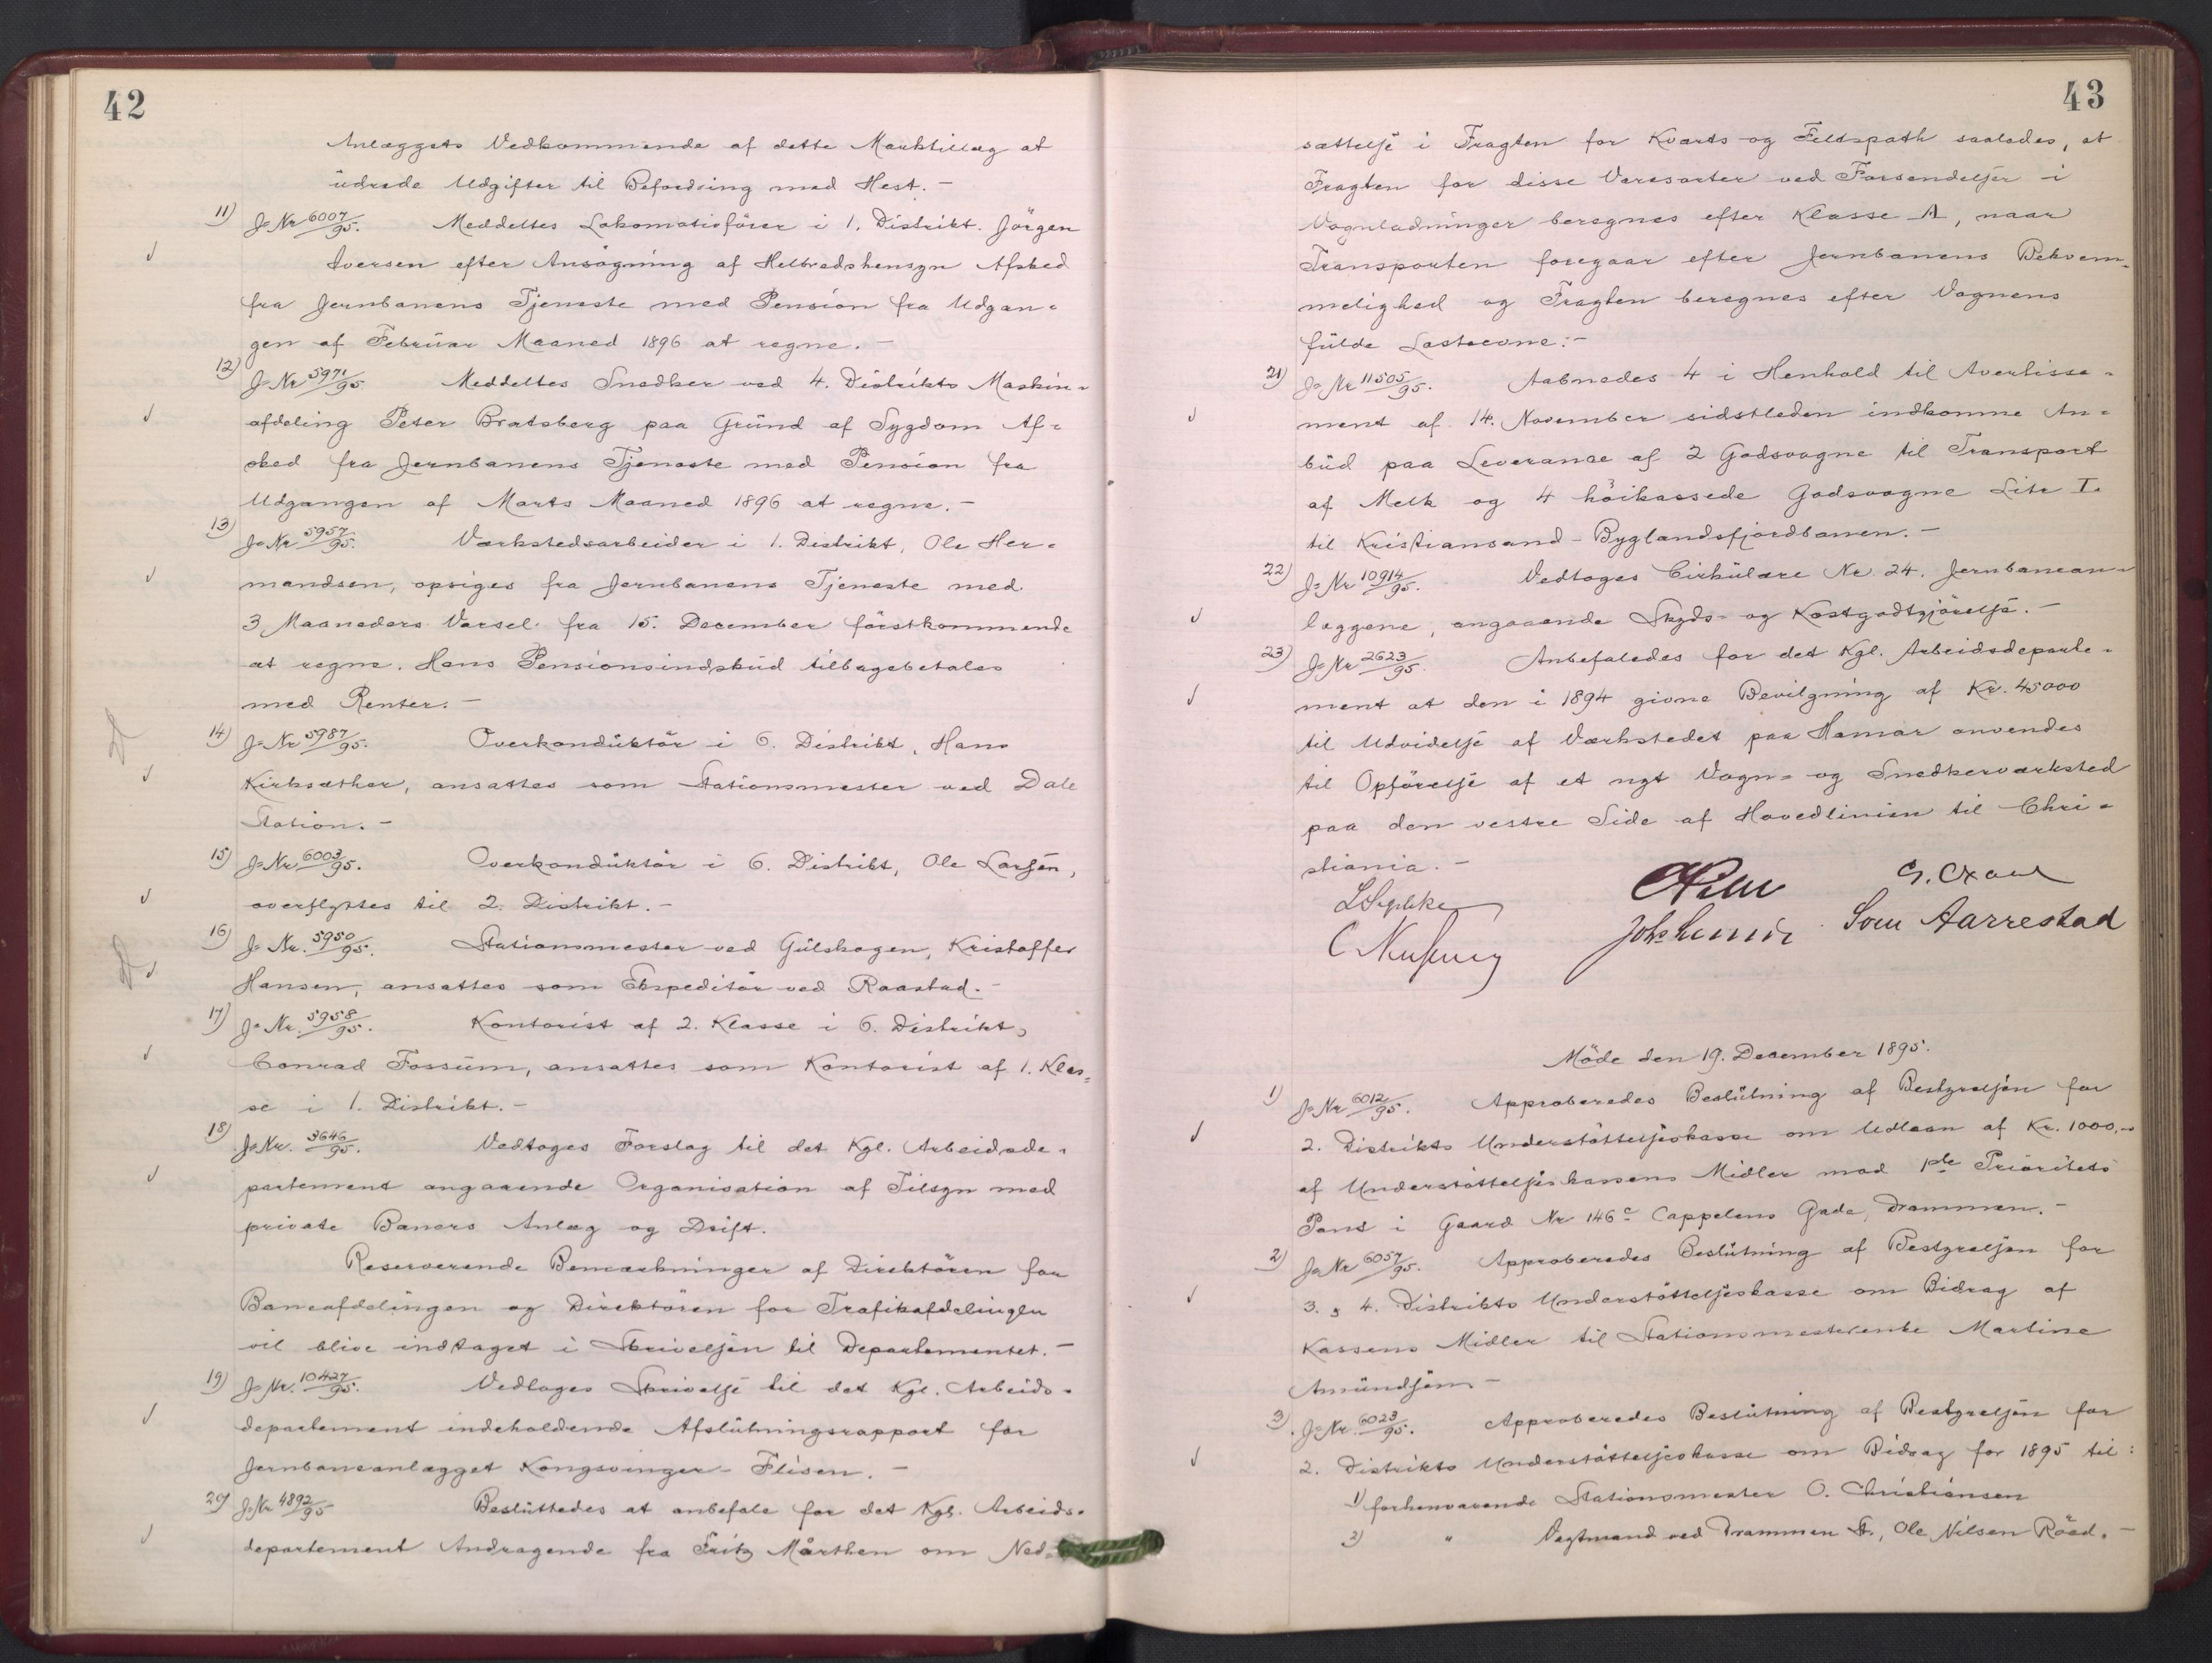 42
Anlæggets Vedkommende af dette Marktillæg at
udrede Udgifter til Befordring med Hest. –
11) J=Nr 6007/95. Meddeltes Lokomotivförer i 1. Distrikt. Jörgen
Iversen efter Ansögning af Helbredshensyn Afsked
fra Jernbanens Tjeneste med Pension fra Udgan=
gen af Februar Maaned 1896 at regne. –
12) J=Nr 5971/95 Meddeltes Snedker ved 4. Distrikts Maskin=
afdeling Peter Bratsberg paa Grund af Sygdom Af=
sked fra Jernbanens Tjeneste med Pension fra
Udgangen af Marts Maaned 1896 at regne. –
13) J=Nr 5957/95. Værkstedsarbeider i 1. Distrikt, Ole Her=
mandsen, opsiges fra Jernbanens Tjeneste med
3 Maaneders Varsel fra 15. December förstkommende
at regne. Hans Pensionsindskud tilbagebetales
med Renter. –
14) J=Nr 5987/95. Overkonduktör i 6. Distrikt, Hans
Kirksæther, ansattes som Stationsmester ved Dale
Station. –
15) J=Nr 6003/95. Overkonduktör i 6. Distrikt, Ole Larsen,
overflyttes til 2. Distrikt. –
16) J=Nr. 5950/95. Stationsmester ved Gulskogen, Kristoffer
Hansen, ansattes som Ekspeditör ved Raastad. –
17) J=Nr. 5958/95. Kontorist af 2. Klasse i 6. Distrikt,
Conrad Fossum, ansattes som Kontorist af 1. Klas=
se i 1. Distrikt. –
18) J=Nr. 3646/95. Vedtoges Forslag til det Kgl. Arbeidsde=
partement angaaende Organisation af Tilsyn med
private Baners Anlæg og Drift.
Reserverende Bemærkninger af Direktören for
Baneafdelingen og Direktören for Trafikafdelingen
vil blive indtaget i Skrivelsen til Departementet. –
19) J=Nr. 10427/95. Vedtoges Skrivelse til det Kgl. Arbeids=
departement indeholdende Afslutningsrapport for
Jernbaneanlægget Kongsvinger - Flisen. –
20) J=Nr 4892/95 Besluttedes at anbefale for det Kgl. Arbeids=
departement Andragende fra Fritz Mårthen om Ned=
43
sættelse i Fragten for Kvarts og Feldspath saaledes, at
Fragten for disse Varesorter ved Forsendelser i
Vognladninger beregnes efter Klasse A, naar
Transporten foregaar efter Jernbanens Bekvem=
melighed og Fragten beregnes efter Vognens
fulde Lasteevne. –
21) J=Nr 11505/95. Aabnedes 4 i Henhold til Avertisse=
ment af 14. November sidstleden indkomne An=
bud paa Leverance af 2 Godsvogne til Transport
af Melk og 4 höikassede Godsvogne Litr I.
til Kristiansand - Byglandsfjordbanen. –
22) J=Nr 10914/95. Vedtoges Cirkulære Nr. 24. Jernbanean=
læggene, angaaende Skyds- og Kostgodtgjörelse. –
23) J=Nr 2623/95. Anbefaledes for det Kgl. Arbeidsdeparte=
ment at den i 1894 givne Bevilgning af Kr. 45000
til Udvidelse af Værkstedet paa Hamar anvendes
til Opförelse af et nyt Vogn= og Snedkerværksted
paa den vestre Side af Hovedlinien til Chri=
stiania. –
Sven Aarrestad
Möde den 19. December 1895.
1) J=Nr 6012/95. Approberedes Beslutning af Bestyrelsen for
2. Distrikts Understöttelseskasse om Udlaan af Kr. 1000.-
af Understöttelseskassens Midler mod 1ste Prioritets
Pant i Gaard Nr 146c Cappelens Gade, Drammen. –
2) J=Nr 6057/95. Approberedes Beslutning af Bestyrelsen for
3. & 4. Distrikts Understöttelseskasse om Bidrag af
Kassens Midler til Stationsmesterenke Martine
Amundsen –
3) J=Nr. 6023/95. Approberedes Beslutning af Bestyrelsen for
2. Distrikts Understöttelseskasse om Bidrag for 1895 til:
1) forhenværende Stationsmester O. Christiansen
2) " Vagtmand ved Drammen St., Ole Nilsen Röed. –